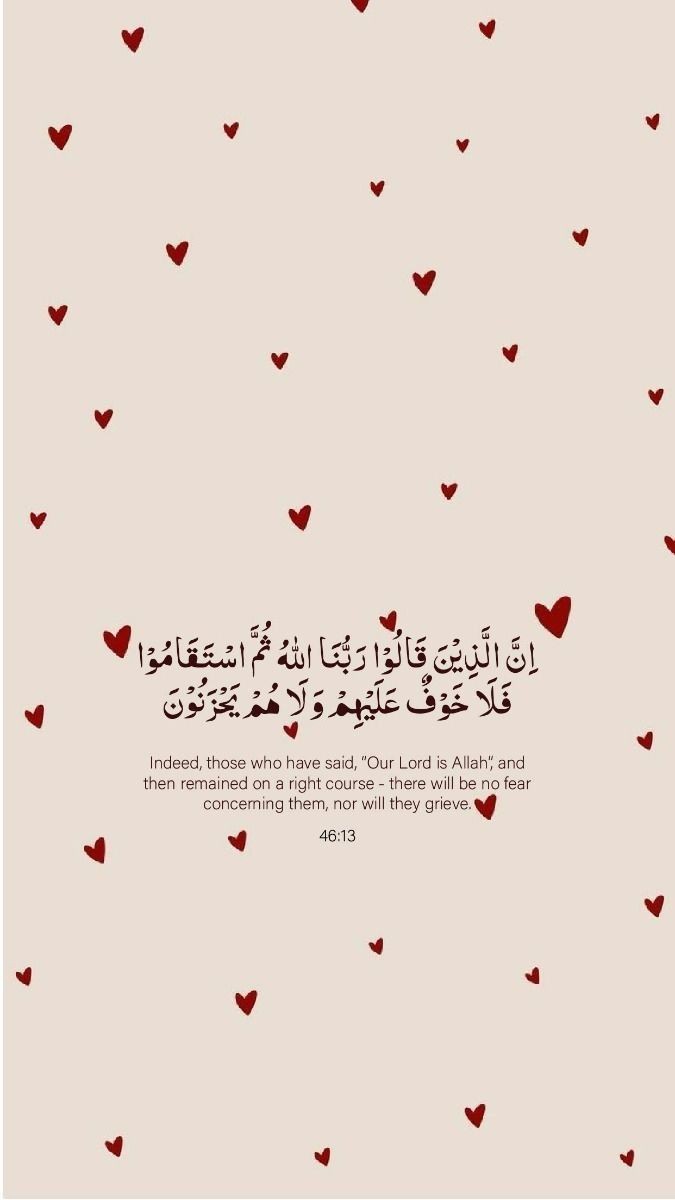 اِنَّ الَّذِيْنَ قَالُوْا رَبُّنَا اللهُ ثُمَّ اسْتَقَامُوْا
فَلَا خَوْفٌ عَلَيْهِمْ وَلَا هُمْ يَحْزَنُوْنَ
Indeed, those who have said, "Our Lord is Allah", and
then remained on a right course - there will be no fear
concerning them, nor will they grieve.
46:13